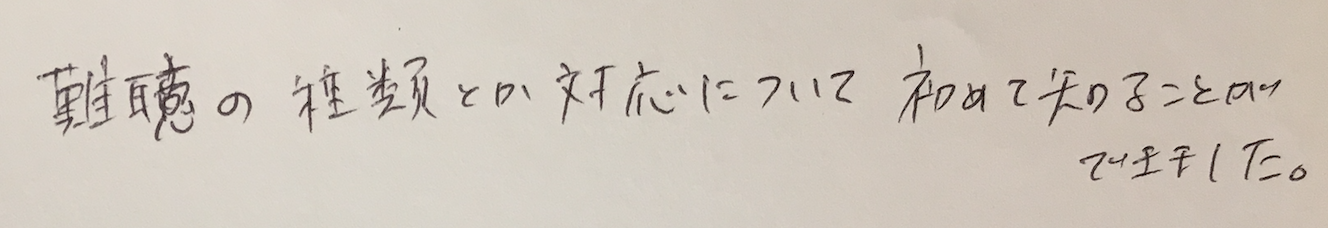 難聴の種類とか対応について初めて知ることが
できました。